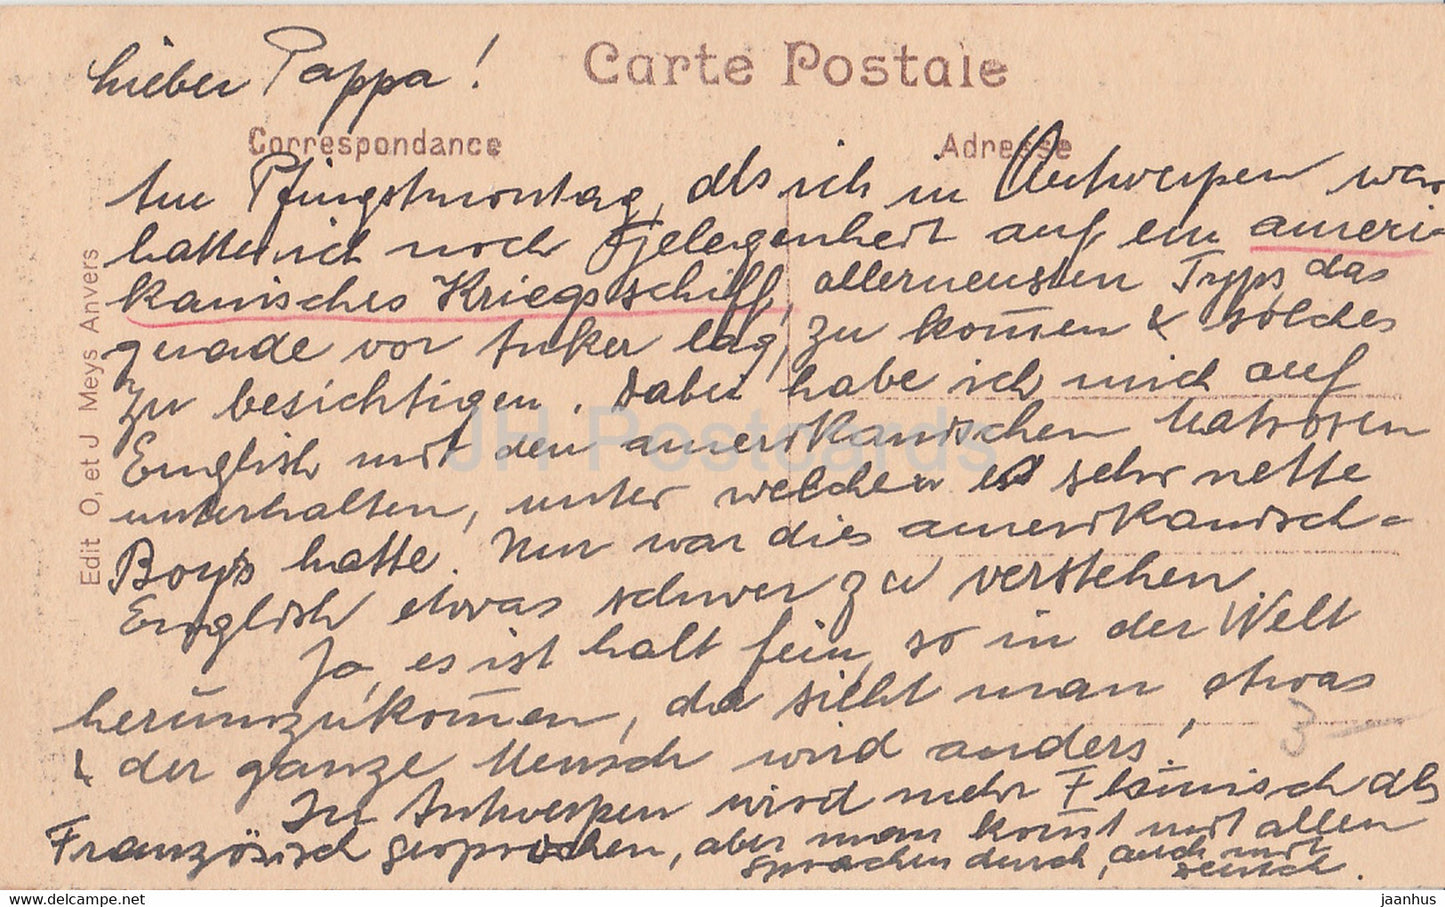 Lieber Pappa!
Carte Postale
Correspondance
Adresse
Am Pfingstmontag, als ich in Antwerpen war
hatte ich noch Gelegenheit auf ein ameri-
kanisches Kriegsschiff, allerneusten Typs, das
gerade vor Anker lag, zu kom̄en & solches
zu besichtigen. Dabei habe ich mich auf
English mit den amerikanischen Matrosen
unterhalten, unter welchen es sehr nette
Boy's hatte. Nur war dies amerikanisch-
English etwas schwer zu verstehen
Ja, es ist halt fein, so in der Welt
herumzukom̄en, da sieht man etwas
& der ganze Mensch wird anders!
In Antwerpen wird mehr Flämisch als
Französisch gesprochen, aber man kom̄t mit allen
Sprachen durch, auch mit
Deutsch.
Edit O, et J Meys Anvers
3 –
JH Postcards
hipstamp.com/store/jaanihus
jaanhus